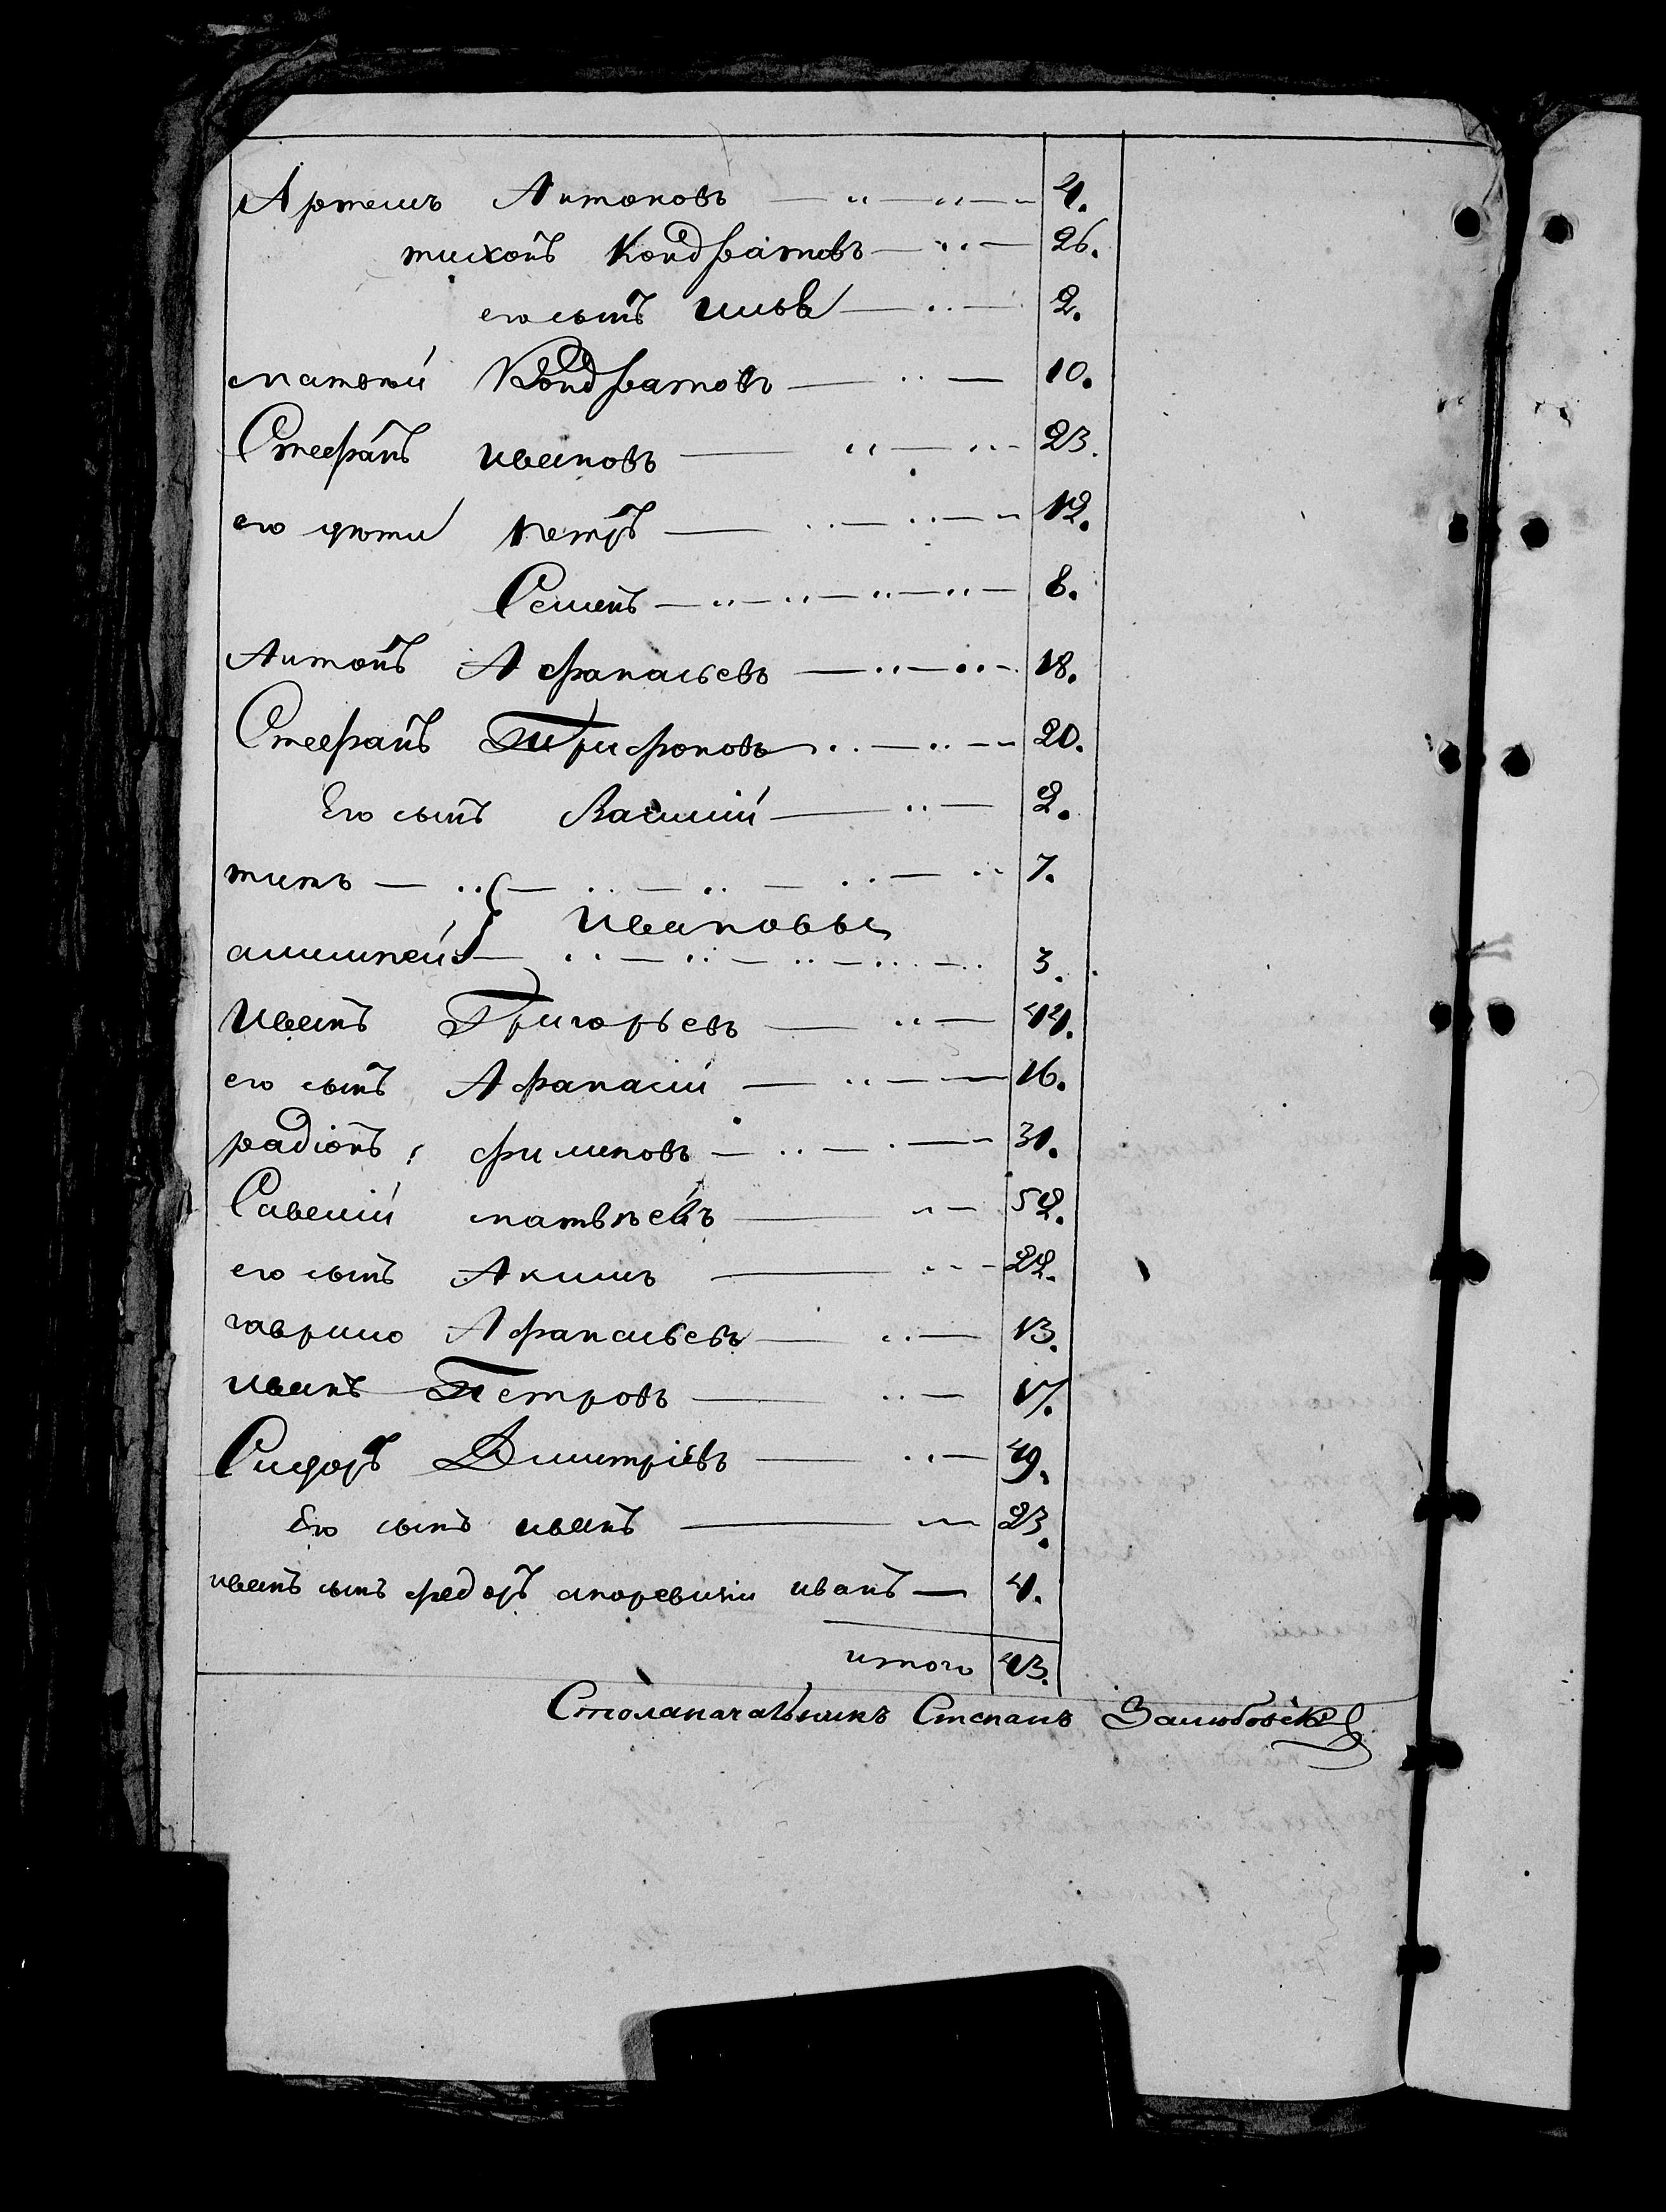 Артемъ Антоновъ — „ — „ — 4.
тихонъ Кондратовъ — „ — 26.
его сынъ илья — „ — 2.
матвѣй Кондратовъ — „ — 10.
Стефанъ ивановъ — „ — „ — 23.
его дѣти петръ — „ — „ — 12.
Семенъ — „ — „ — „ — „ — 8.
Антонъ Афанасьевъ — „ — „ — 18.
Стефанъ Трифоновъ „ — „ — 20.
Его сынъ Василий — „ — 2.
титъ — „ — „ — „ — „ — „ 7.
Ивановы
„ — „ — „ — „ — „ 3.
Иванъ Григорьевъ — „ — 44.
его сынъ Афанасий — „ — 16.
радіонъ филиповъ — „ — 31.
Савелій матвѣевъ — „ — 52.
его сынъ Акимъ — „ — 22.
гаврило Афанасьевъ — „ — 13.
иванъ Петровъ — „ — 17.
Сидоръ Дмитріевъ — „ — 49.
Его сынъ иванъ — „ — 23.
иванъ сынъ федоръ иванъ — 4.
итого 43.
Столаначальникъ Степанъ